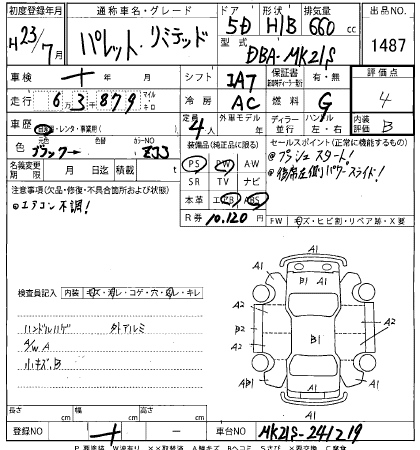 初度登録年月 通称車名・グレード ドア 形状 排気量 出品NO.
H23/7月 パレット・リミテッド 5D H/B 660cc 1487
型式 DBA-MK21S
車検 年 月 シフト IA7 保証書 有・無 評価点
走行 6万3千879 マイル キロ 冷房 AC 燃料 G 4
車歴 自家用・レンタ・事業用( ) 定員 4人 外車モデル 年式 ディーラー 並行 ハンドル 左・右 内装評価 B
元色 色替 カラーNO.
ブラック ZJ3
名義変更期限 月 日迄 積載 t
装備品(純正品に限る)
PS PW AW
SR TV ナビ
本革 エアB ABS
R券 10.120円
セールスポイント(正常に機能するもの)
◎プッシュスタート!
◎助席左側パワースライド!
FW キズ・ヒビ割・リペア跡・X要
注意事項(欠品・修復・不具合箇所および状態)
◎エアコン不調!
検査員記入 内装 キズ・汚レ・コゲ・穴・切レ・キレ
ハンドルハゲ 外アルミ
A/W A
小キズ、B
A1 A1 A1 A2 A2 A2 B1 B1 A1 A1 A1
長さ cm 幅 cm 高さ cm
登録NO 車台NO. MK21S-241219